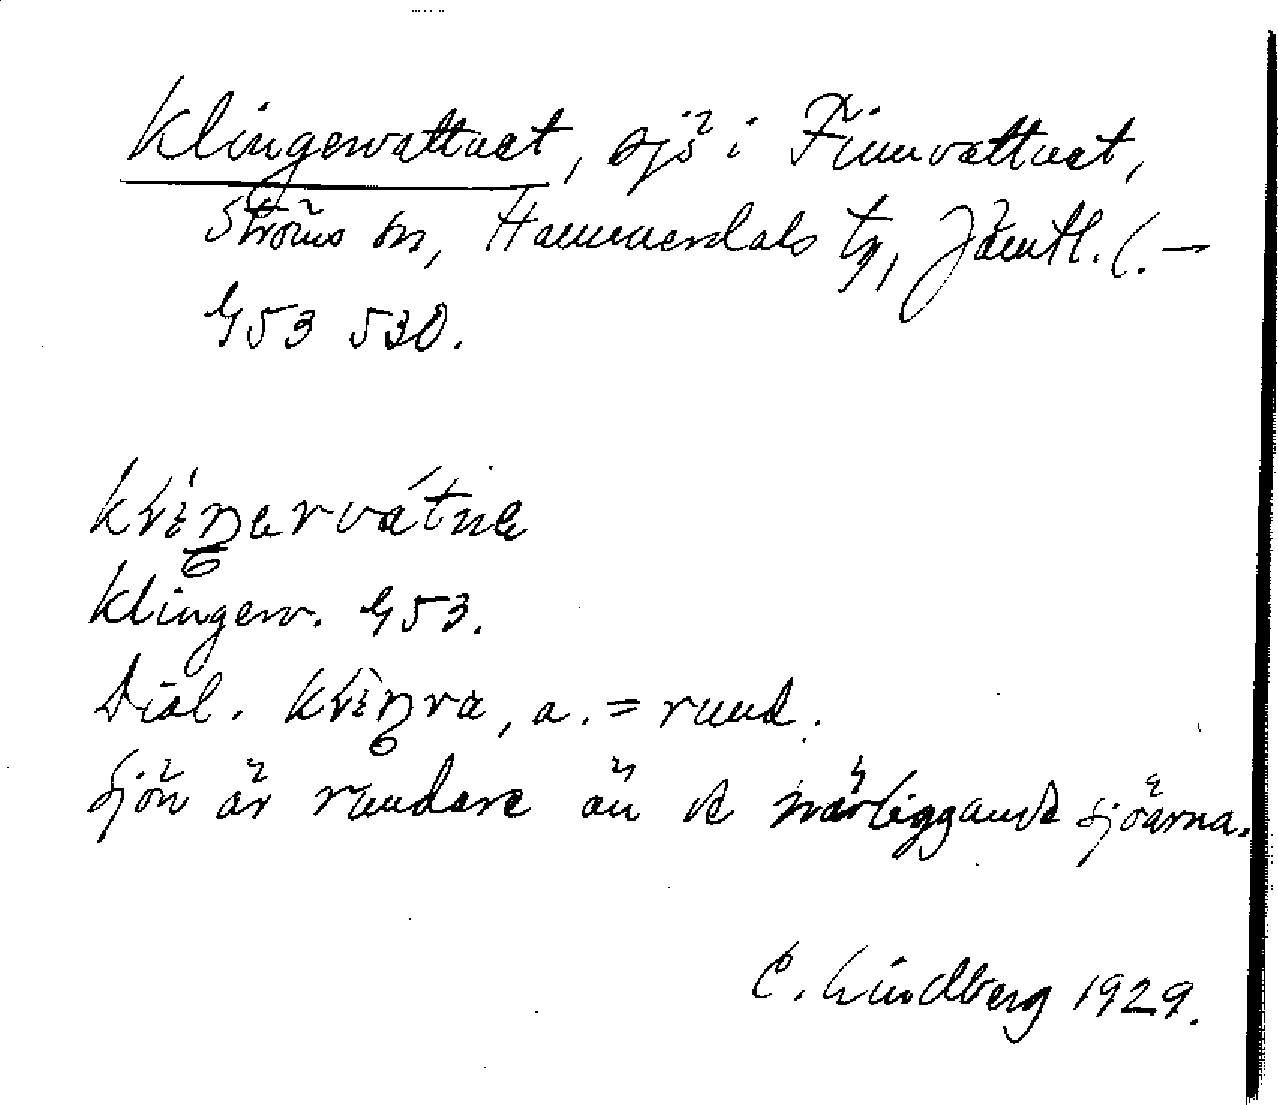 Klingervattnet, sjö i Finnvattnet,
Ströms sn, Hammerdals tg, Jämtl. l. —
G53 530.
klìŋervátnɛ
Klingerv. G53.
Dial. klìŋra, a. = rund.
Sjön är rundare än de närliggande sjöarna.
C. Lindberg 1929.